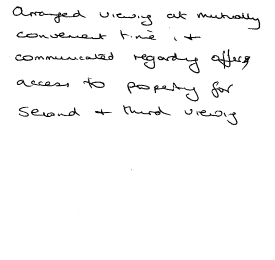 Arranged viewing at mutually
convenient time, +
communicated regarding offers,
access to property for
second + third viewing